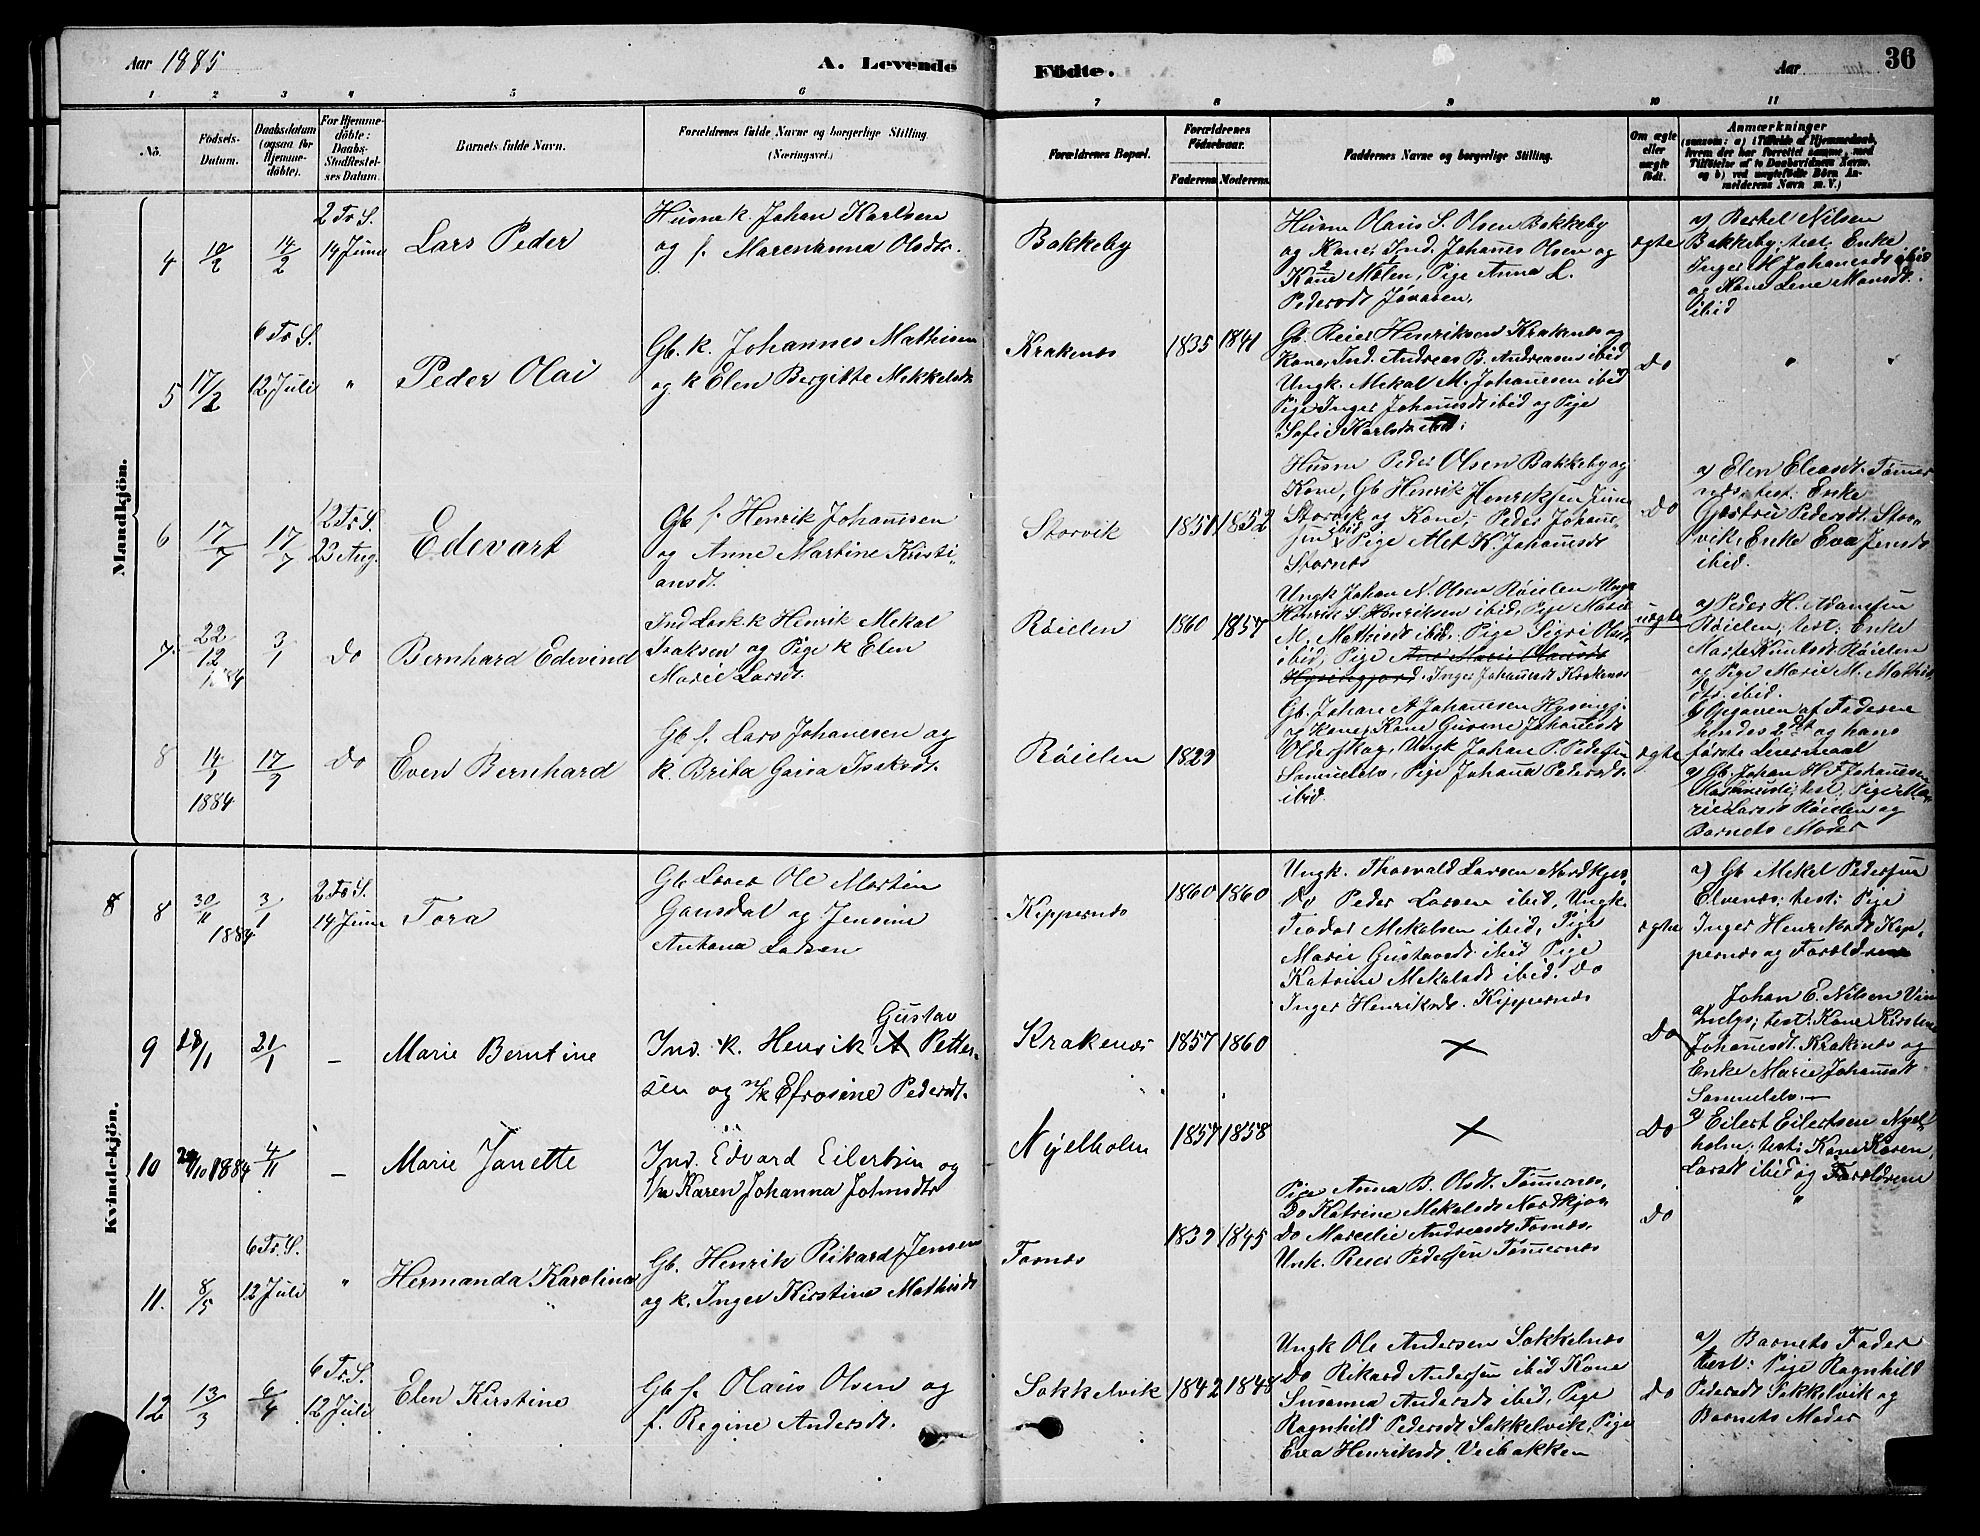 Aar 1885
A. Levende
Födte.
Aar
36
1 2 3 4 5 6 7 8 9 10 11
No.
Födsels-
Datum.
Daabsdatum
(ogsaa for
Hjemme-
döbte).
For Hjemme-
döbte:
Daabs-
Stadfæstel-
ses Datum.
Barnets fulde Navn.
Forældrenes fulde Navne og borgerlige Stilling
(Næringsvei.)
Forældrenes Bopæl.
Forældrenes
Födselsaar.
Faderens Moderens
Faddernes Navne og borgerlige Stilling.
Om ægte
eller
uægte
födt.
Anmærkninger
Mandkjön.
4
10/2
14/2
2 Tr S.
14 Juni
Lars Peder
Husm k. Johan Karlsen
og f. Marenanna Olsdtr.
Bakkeby
Husm Olaus S. Olsen Bakkeby
og Kone, Ind. Johannes Olsen og
Kone Molen, Pige Anna L.
Pedersdt Jövasen,
ægte
a) Berhel Nilsen
Bakkeby; test. Enke
Inger M Johansdt ibid
og Kone Lene Monsdt.
ibid
5
17/2
6 Tr S.
12 Juli
"
Peder Olai
Gb. k. Johannes Mathisen
og k Elen Bergitte Mekkelsdt.
Krakenæs
1835 1841
Gb. Reier Henriksen Krakenæs og
Kone, Ind. Andreas B. Andreasen ibid
Ungk. Mekal M. Johannesen ibid
Pige Inger Johannesdt ibid og Pige
Sofie Karlsdt ibid.
Do
" "
6
17/7
17/7
12 Tr S.
23 Aug.
Edevart
Gb f. Henrik Johannesen
og Anne Martine Kristi
ansdt.
Storvik
1851 1852
Husm Peder Olsen Bakkeby og
Kone, Gb Henrik Henriksen
Storvik og Kone, Peder Johanne
sen ibid, Pige Met K. Johannesdt
Stornæs
Do
a) Elen Eliasdt. Tömmer
næs, test. Enke
Gjertru Pedersdt. Stor
vik, Enke Eva Jensdt
ibid.
7.
22/12 1884
3/1
Do
Bernhard Edevind
Ind Lösk. k Henrik Mekal
Isaksen og Pige k Elen
Marie Larsdt.
Röielen
1860 1857
Ungk Johan N. Olsen Röielen Ungk
Henrik S. Henriksen ibid, Pige Marie
M. Mathisdt ibid, Pige Sigri Olsdt
ibid, Pige Ane Marie Olausdt
Hysingjord. Inger Johannesdt Krakenæs
uægte
a) Peder H. Adamsen
Röielen; test: Enke
Marte Knutsdt Röielen
og Pige Marie M. Mathis
dtr. ibid.
b) Opgaven af Faderen
hendes 2det og hans
förste Leiermaal
8
14/1
1884
17/2
Do
Even Bernhard
Gb f. Lars Johanesen og
k. Brita Gaisa Isaksdt.
Röielen
1829
Gb. Johan A Johanesen Hysingj.
og Kone, Kone Gurine Johanesdt
Olderskog, Ungk Johan P. Pedersen
Samuelelv, Pige Johana Pedersdt.
ibid.
ægte
a) Gb. Johan H. F Johanesen
test: Pige Ma
rie Larsdt Röielen og
Barnets Moder
Kvindekjön.
8 8
30/11 1884
3/1
2 Tr S.
14 Juni
Tora
Gb Lars Ole Martin
Gausdal og Jensine
Antona Larsen
Kippernæs
1860 1860
Ungk. Thorvald Larsen Nordkjos,
Do Peder Larsen ibid, Ungk.
Teodor Mekalsen ibid, Pige
Marie Gustavsdt ibid Pige
Katrine Mekalsdt ibid. Do
Inger Henriksdt. Kippernæs
ægte
a) Gb Mekel Pedersen
Elvenæs; test: Pige
Inger Henriksdt Kip,
pernæs og Forældrene
9
18/1
21/1
–
Marie Berntine
Gustav
Ind. k. Henrik A Petter-
sen og n/k Efrosine Pedersdt.
Krakenæs
1857 1860
×
Do
a) Johan E. Nilsen
test: Kone Kirstine
Johannesdt. Krakenæs og
Enke Marie Johannesdt
Samuelelv. —
10
29/10 1884
4/11
–
Marie Janette
Ind. Edvard Eilertsen og
Karen Johanna Johnsdtr
Nyelholm
1857 1858
×
Do
a) Eilert Eilertsen Nyel
holm; test: Kone Karen
Larsdt ibid og Forældrene
11.
8/5
6 Tr. S.
12 Juli
"
Hermanda Karolina
Gb. Henrik Rikard Jensen
og k. Inger Kirstine Mathisdt
Tornæs
1839 1845
Pige Anna B. Olsdt. Tömmernæs,
Do Katrine Mekalsdt Nordkjos
Do Marcelie Andreasdt Tornæs.
Unk. Reier Pedersen Tömmernæs
Do
"
12
13/3
6/4
6 Tr. S.
12 Juli
Elen Kirstine
Gb f. Olaus Olsen og
f. Regine Andersdt.
Sokkelvik
1842 1848
Ungk Ole Andersen Sokkelnæs
Do Rikard Andersen ibid Kone
Susanna Andersdt ibid, Pige
Ragnhild Pedersdt Sokkelvik, Pige
Eva Henriksdt. Veibakken
Do
a) Barnets Fader
test: Pige Ragnhild
Pedersdt Sokkelvik og
Barnets Moder